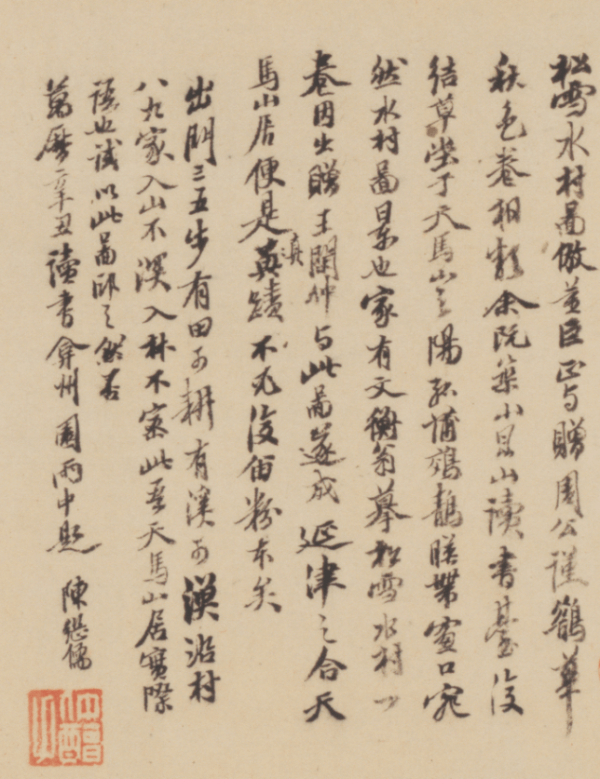 松雪水村圖倣董巨正与贈周公謹鵲華
秋色卷相類余既築小昆山讀書臺復
結草堂于天馬山之陽菰蒲鵁鶄映帶窗口宛
然水村圖景也家有文衡翁摹松雪水村一
卷因出贈王閑仲与此圖遂成延津之合天
馬山居便是真蹟不必復留粉本矣
出門三五步有田可耕有溪可漁沿村
八九家入山不深入林不密此吾天馬山居實際
語也試以此圖印之然否
萬曆辛丑讀書弇州園雨中題 陳繼儒